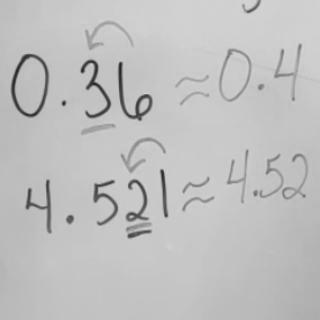 0.36 ≈ 0.4
4.521 ≈ 4.52